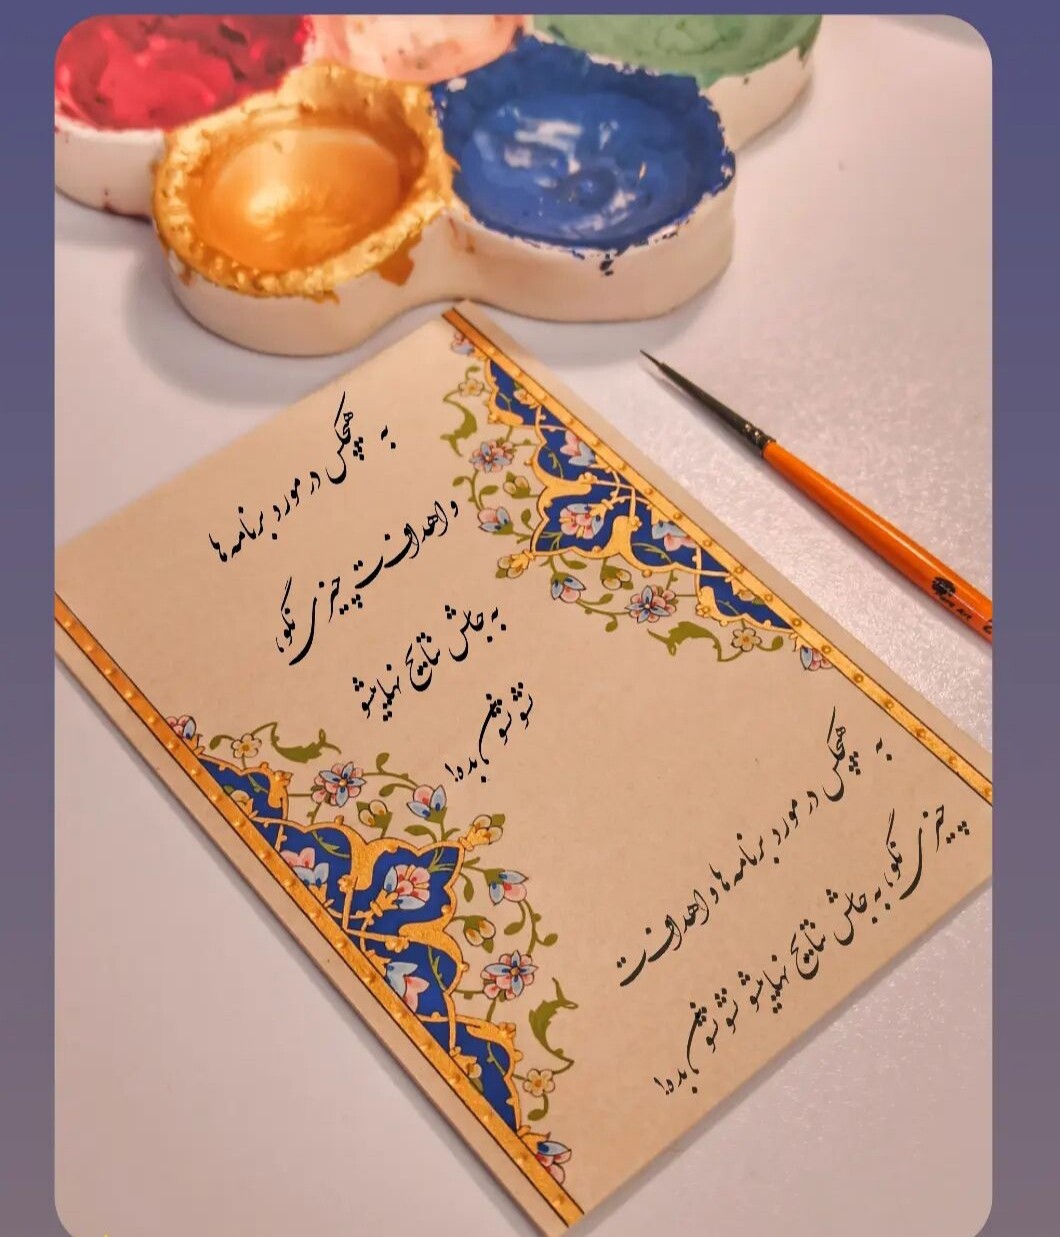 به هیچکس در مورد برنامه ها
و اهدافت چیزی نگو،
به جاش نتایج نهاییشو
نشونشون بده!
به هیچکس در مورد برنامه ها و اهدافت
چیزی نگو، به جاش نتایج نهاییشو نشونشون بده!